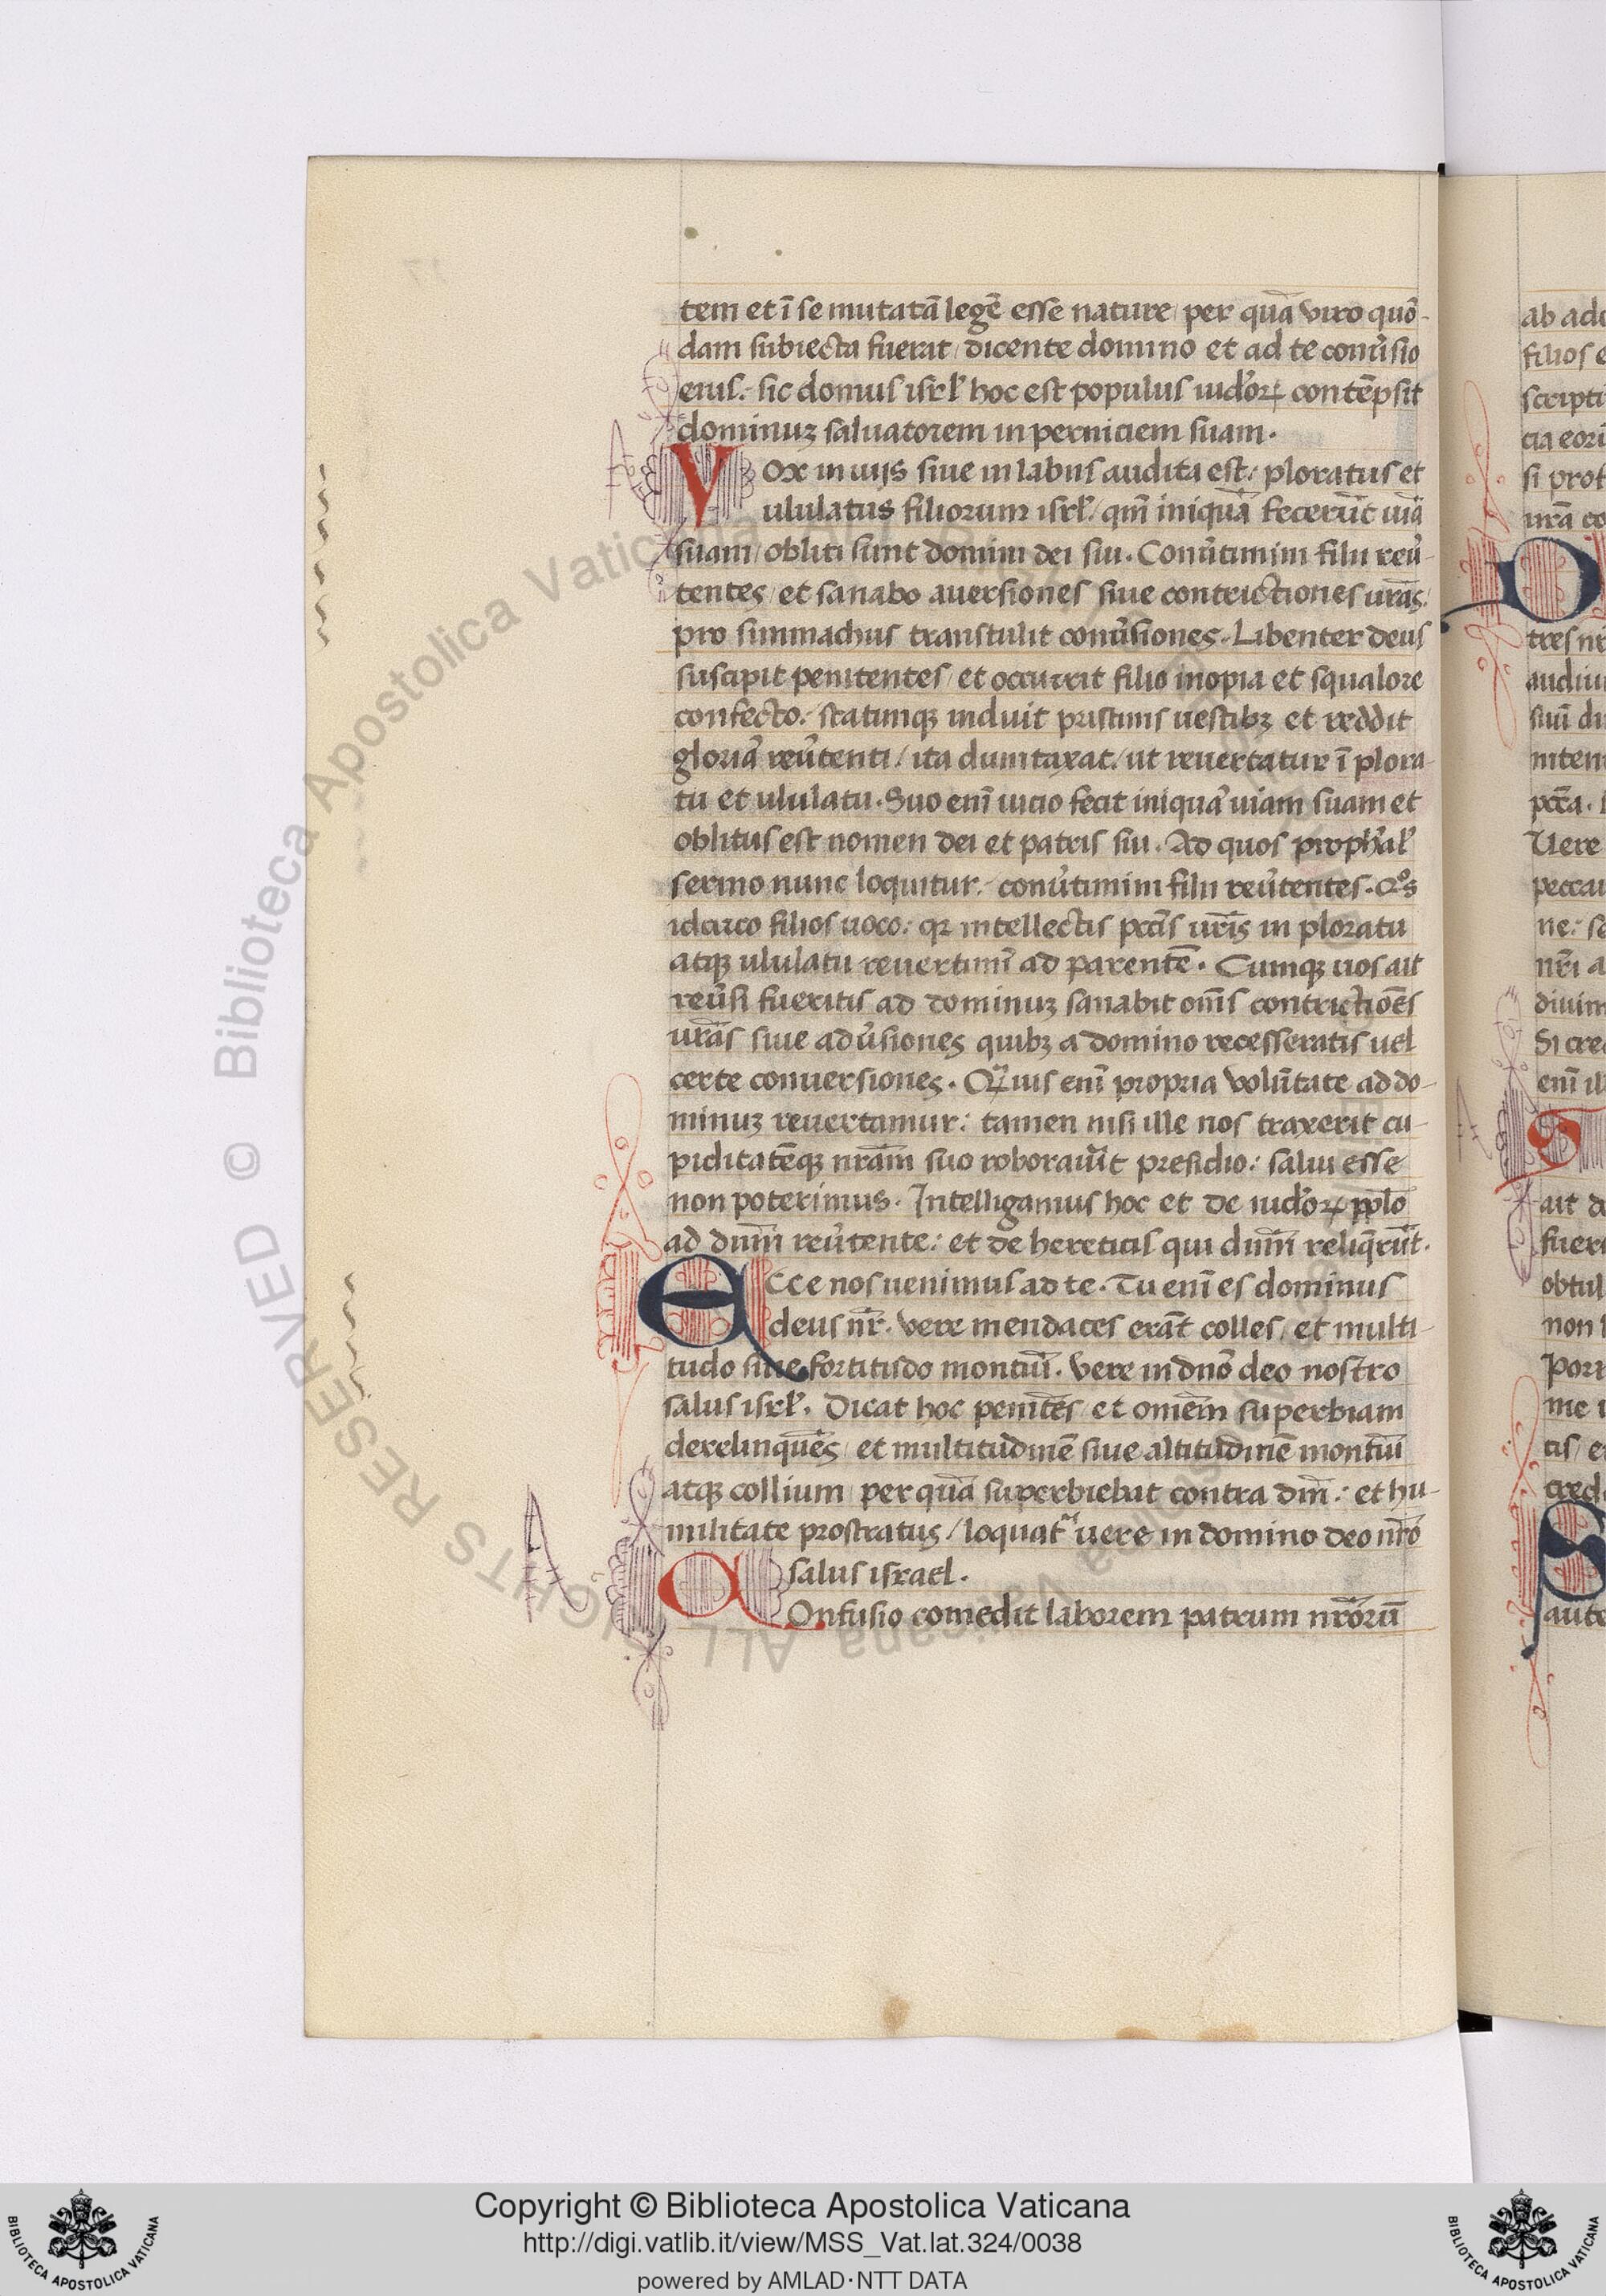 tem et ī se mutatā legē esse nature / per quā viro quō-
dam subiecta fuerat / dicente domino et ad te conu̓sio
eius. sic domus isrl̓ hoc est populus iude̓oꝝ contēpsit
dominuꝫ saluatorem in perniciem suam.
Vox in uijs siue in labiis audita est: ploratus et
ululatus filiorum isrl̓ / qm̄ iniquā fecerūt uiā
suam / obliti sunt domini dei sui. Conu̓timini filii reu̓-
tentes / et sanabo auersiones siue contrictiones ur̄as:
pro simmachus transtulit conu̓siones. Libenter deus
suscipit penitentes / et occurrit filio inopia et squalore
confecto. statimqꝫ induit pristinis uestibꝫ et reddit
gloriā reu̓tenti / ita dumtaxat / ut reuertatur ī plora-
tu et ululatu. Suo enī uicio fecit iniquā uiam suam et
oblitus est nomen dei et patris sui. Ad quos proph̓al̓
sermo nunc loquitur. conu̓timini filii reu̓tentes. Qͦs
idcirco filios uoco: qꝛ intellectis pccīs ur̄is in ploratu
atqꝫ ululatu reuertimī ad parentē. Cumqꝫ uos ait
reu̓si fueritis ad dominuꝫ sanabit om̄s contrictiōes
ur̄as siue adu̓siones quibꝫ a domino recesseratis uel
certe conuersiones. Qꝫuis enī propria volūtate ad do-
minuꝫ reuertamur: tamen nisi ille nos traxerit cu-
piditatēqꝫ nr̄am suo roborauīt presidio: salui esse
non poterimus. Intelligamus hoc et de iude̓oꝝ pplo
ad dnm̄ reu̓tente: et de hereticis qui dnm̄ reliq̄rūt.
Ecce nos uenimus ad te. Tu enī es dominus
deus nr̄. vere mendaces erāt colles / et multi-
tudo siue fortitudo montiū. vere in dnō deo nostro
salus isrl̓. Dicat hoc penitēs / et omēm superbiam
derelinquēs / et multitudinē siue altitudinē montiū
atqꝫ collium / per quā superbiebat contra dm̄: et hu-
militate prostratus / loquat᷑ uere in domino deo nr̄o
salus israel.
Confusio comedit laborem patrum nr̄orū
Copyright © Biblioteca Apostolica Vaticana
http://digi.vatlib.it/view/MSS_Vat.lat.324/0038
powered by AMLAD·NTT DATA